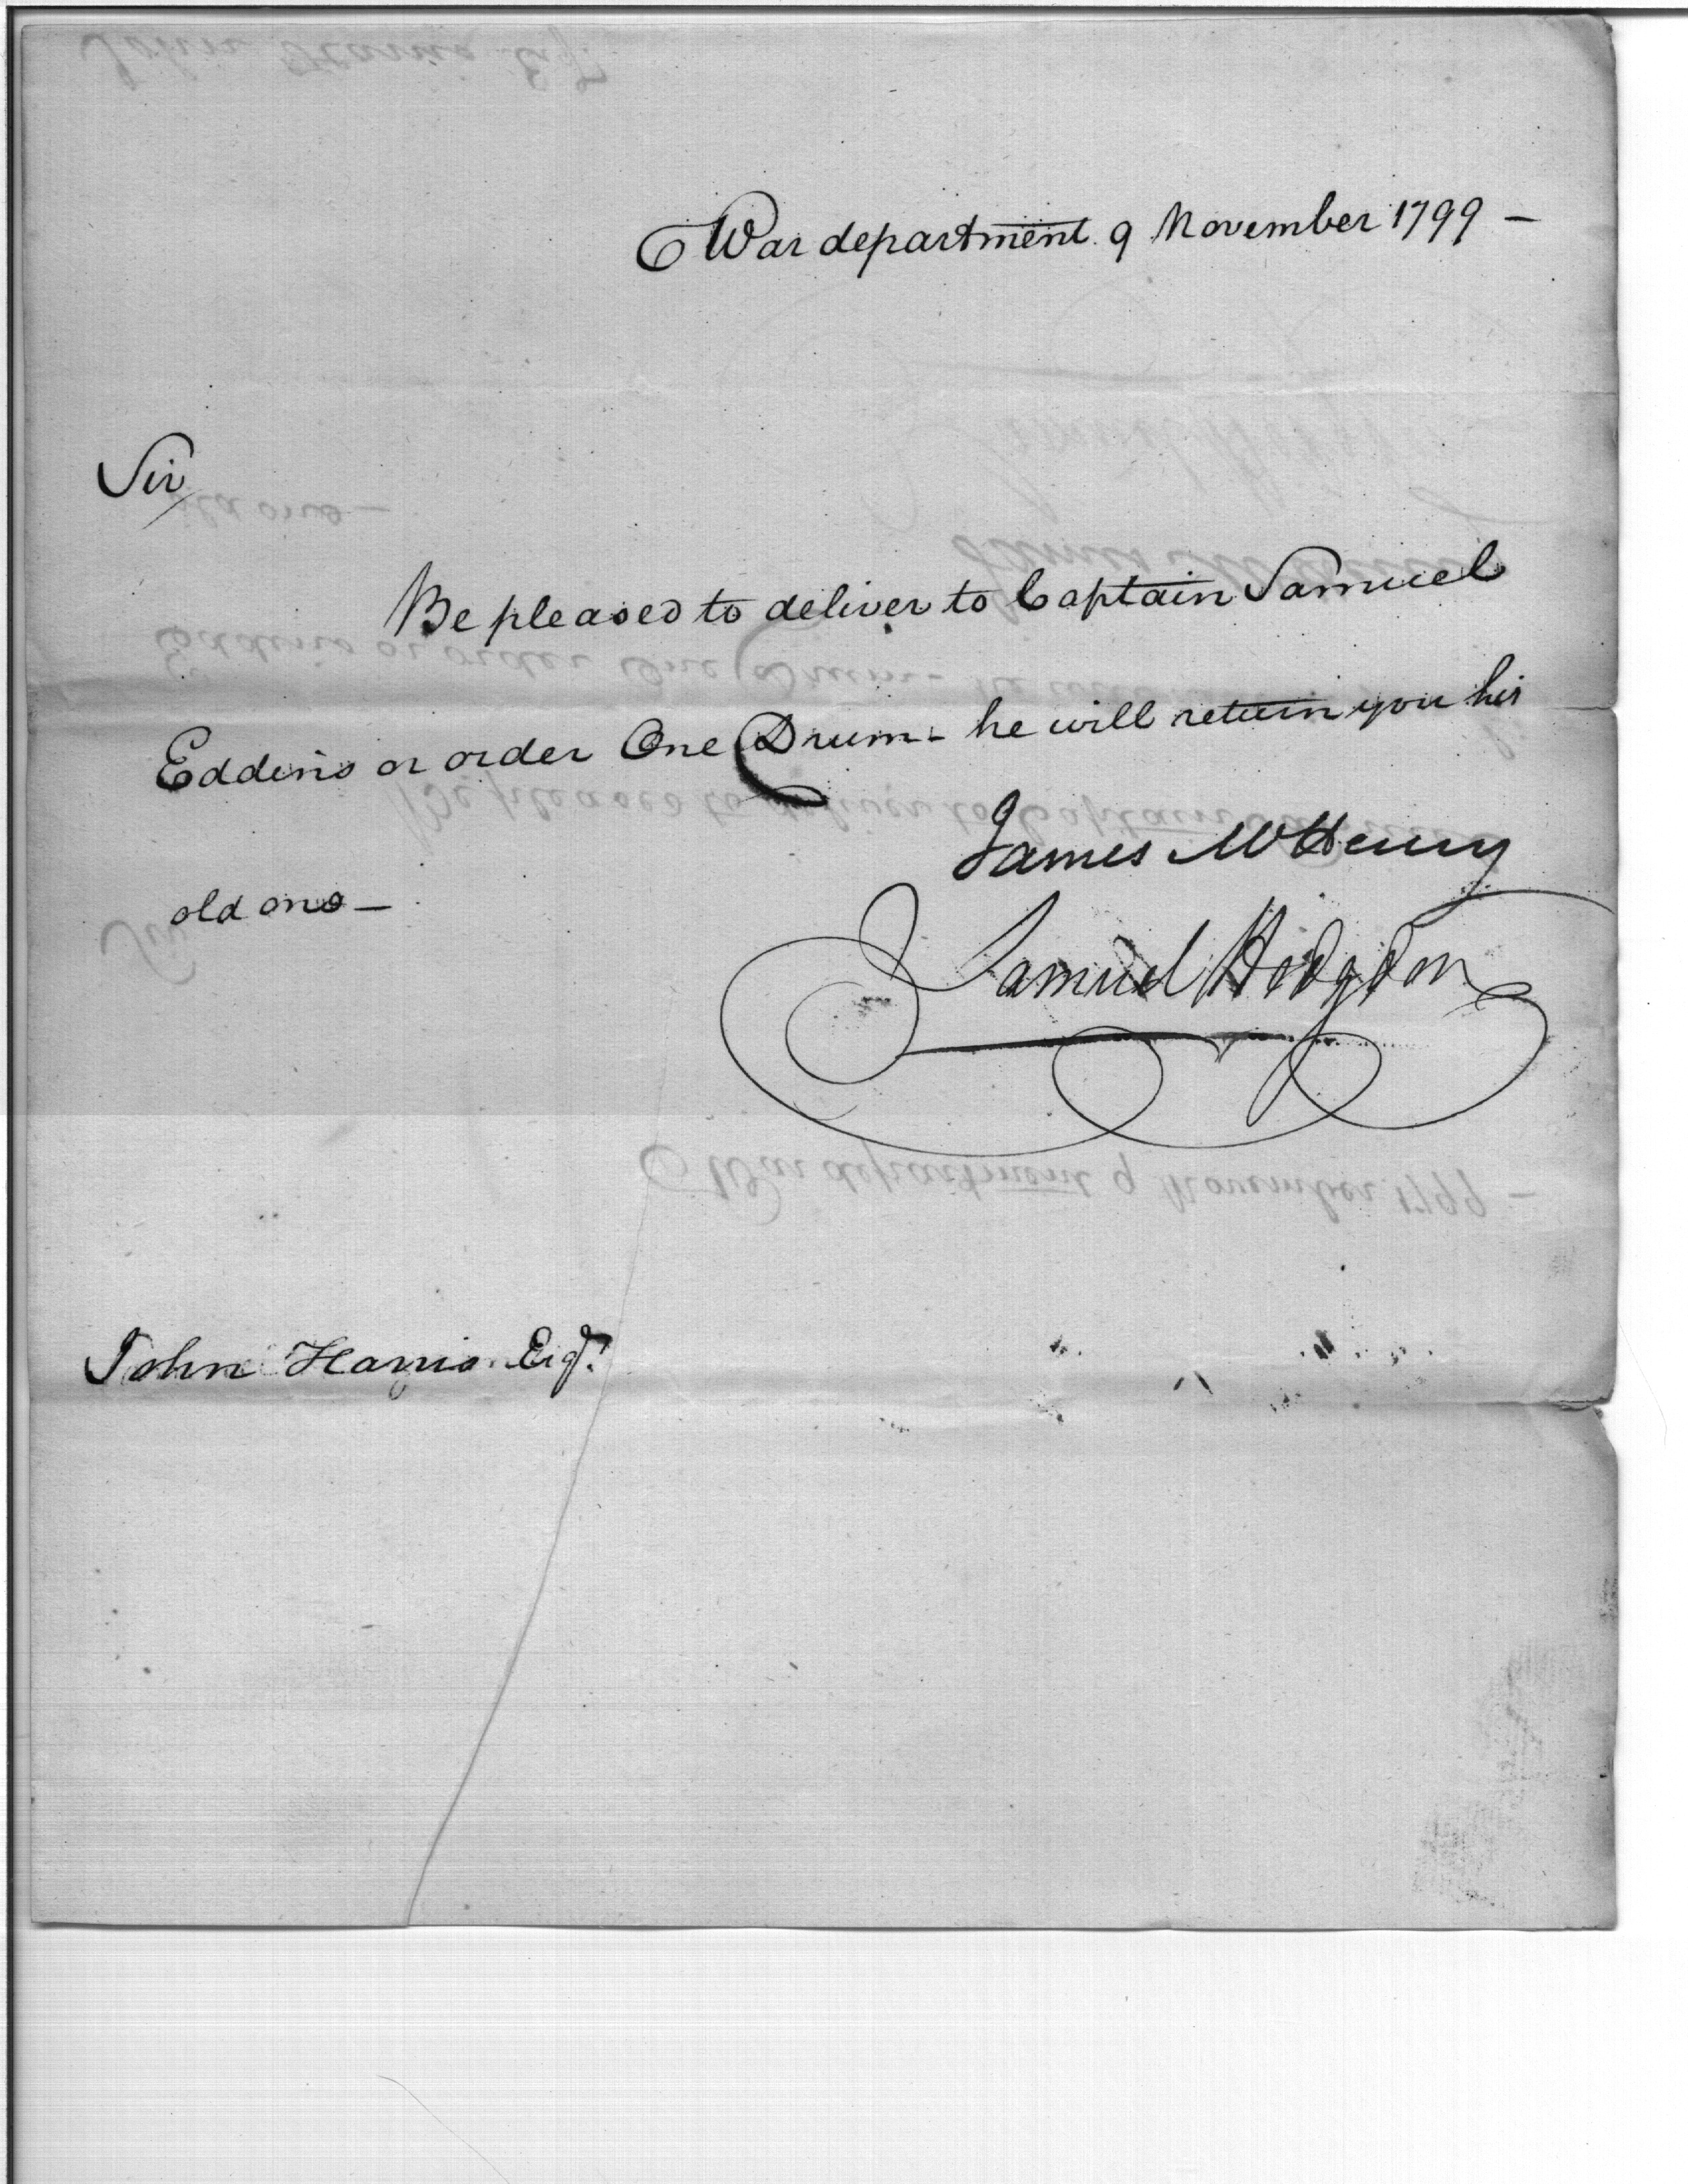 War department 9 November 1799 –
Sir
Be pleased to deliver to Captain Samuel
Eddins or order One Drum – he will return you his
old one –
James McHenry
Samuel Hodgdon
John Harris Esqr.